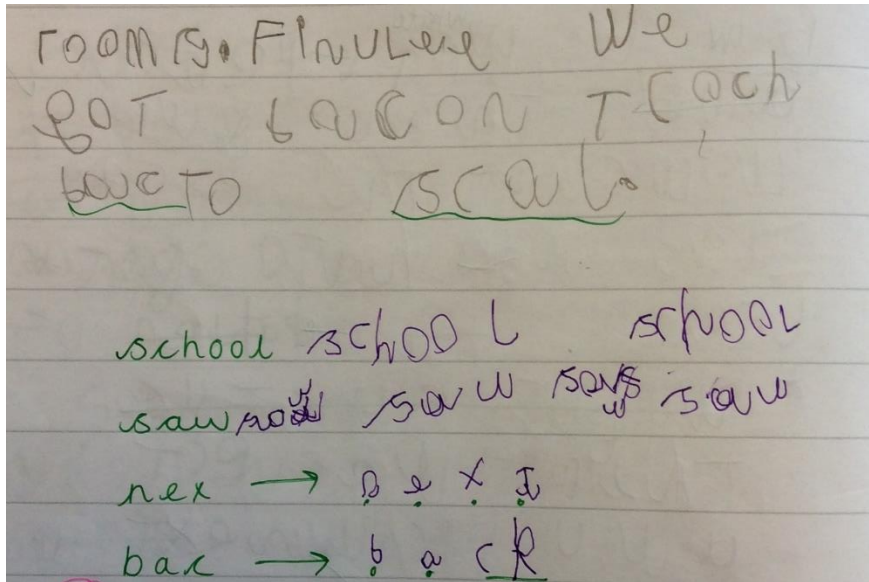 rooms. Finulee We
got bac on T coch
bac To scaul.
school school school
saw saw saw saw
nex → n e x t
bac → b a c k